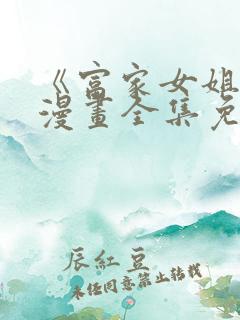 《富家女姐
漫畫全集免
辰紅豆
未经同意禁止转载